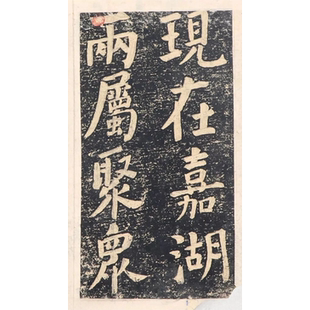 現在嘉湖
兩屬聚衆